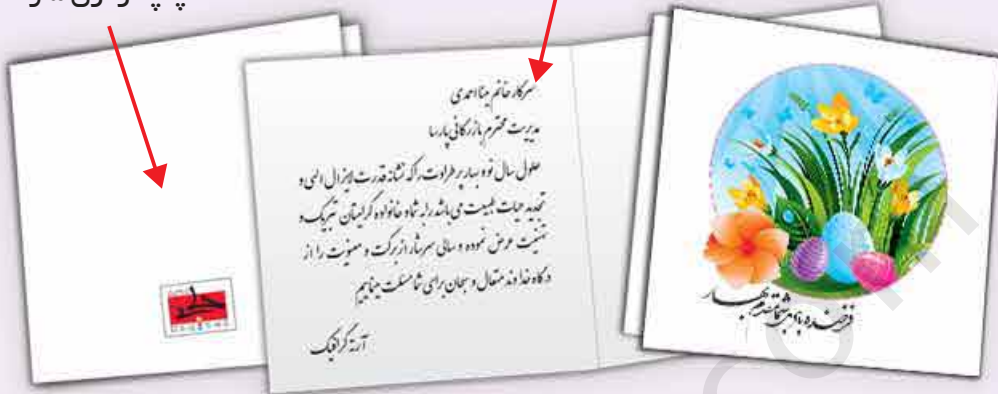 سرکار خانم مینا احمدی
مدیریت محترم بازرگانی پارسا
حلول سال نو و بهار پر طراوت را که نشانه قدرت لایزال الهی و
تجدید حیات طبیعت می باشد را به شما و خانواده گرامیتان تبریک و
تهنیت عرض نموده و سالی سرشار از برکت و معنویت را از
درگاه خداوند متعال و سبحان برای شما مسئلت می‌نماییم
گرافیک
فرخنده باد بر شما مقدم بهار